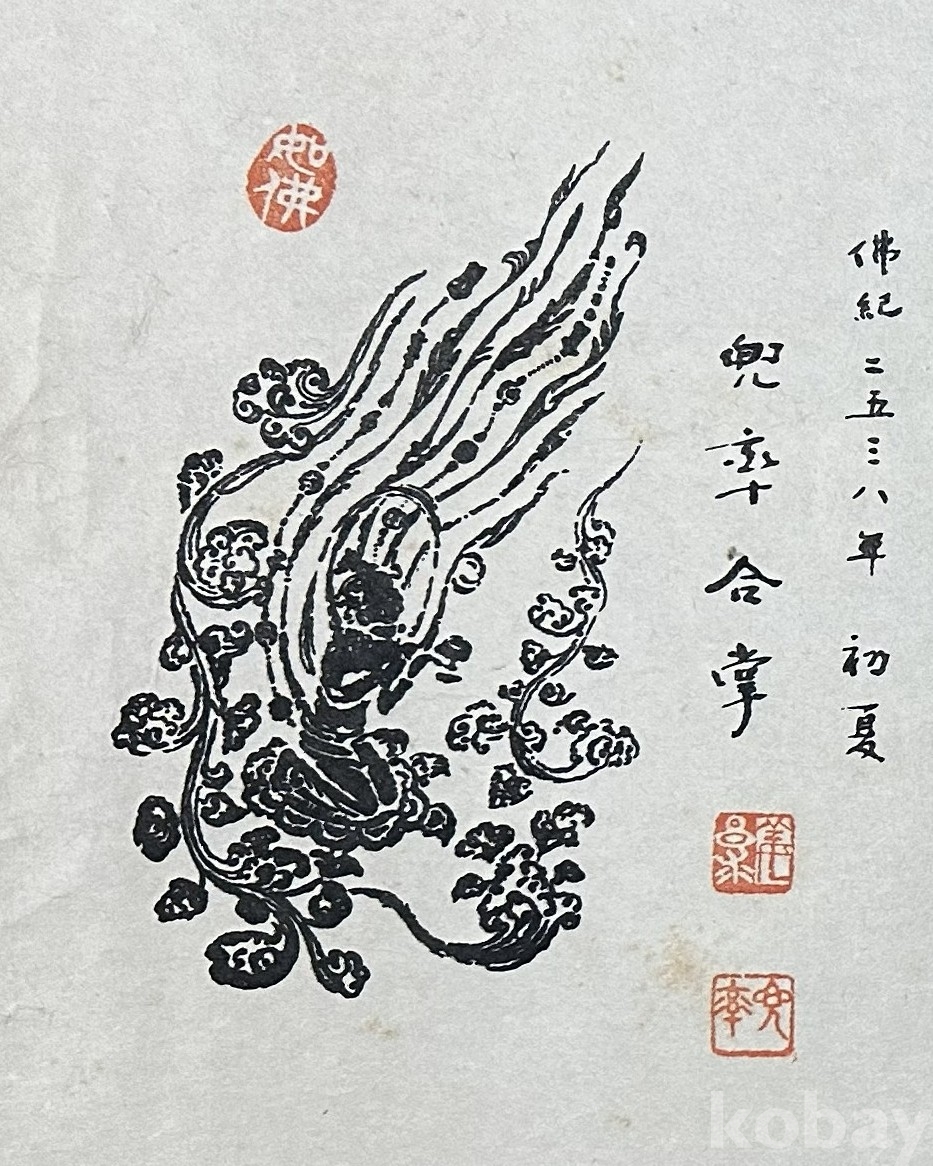 佛紀二五三八年 初夏
兜率合掌
兜率
kobay